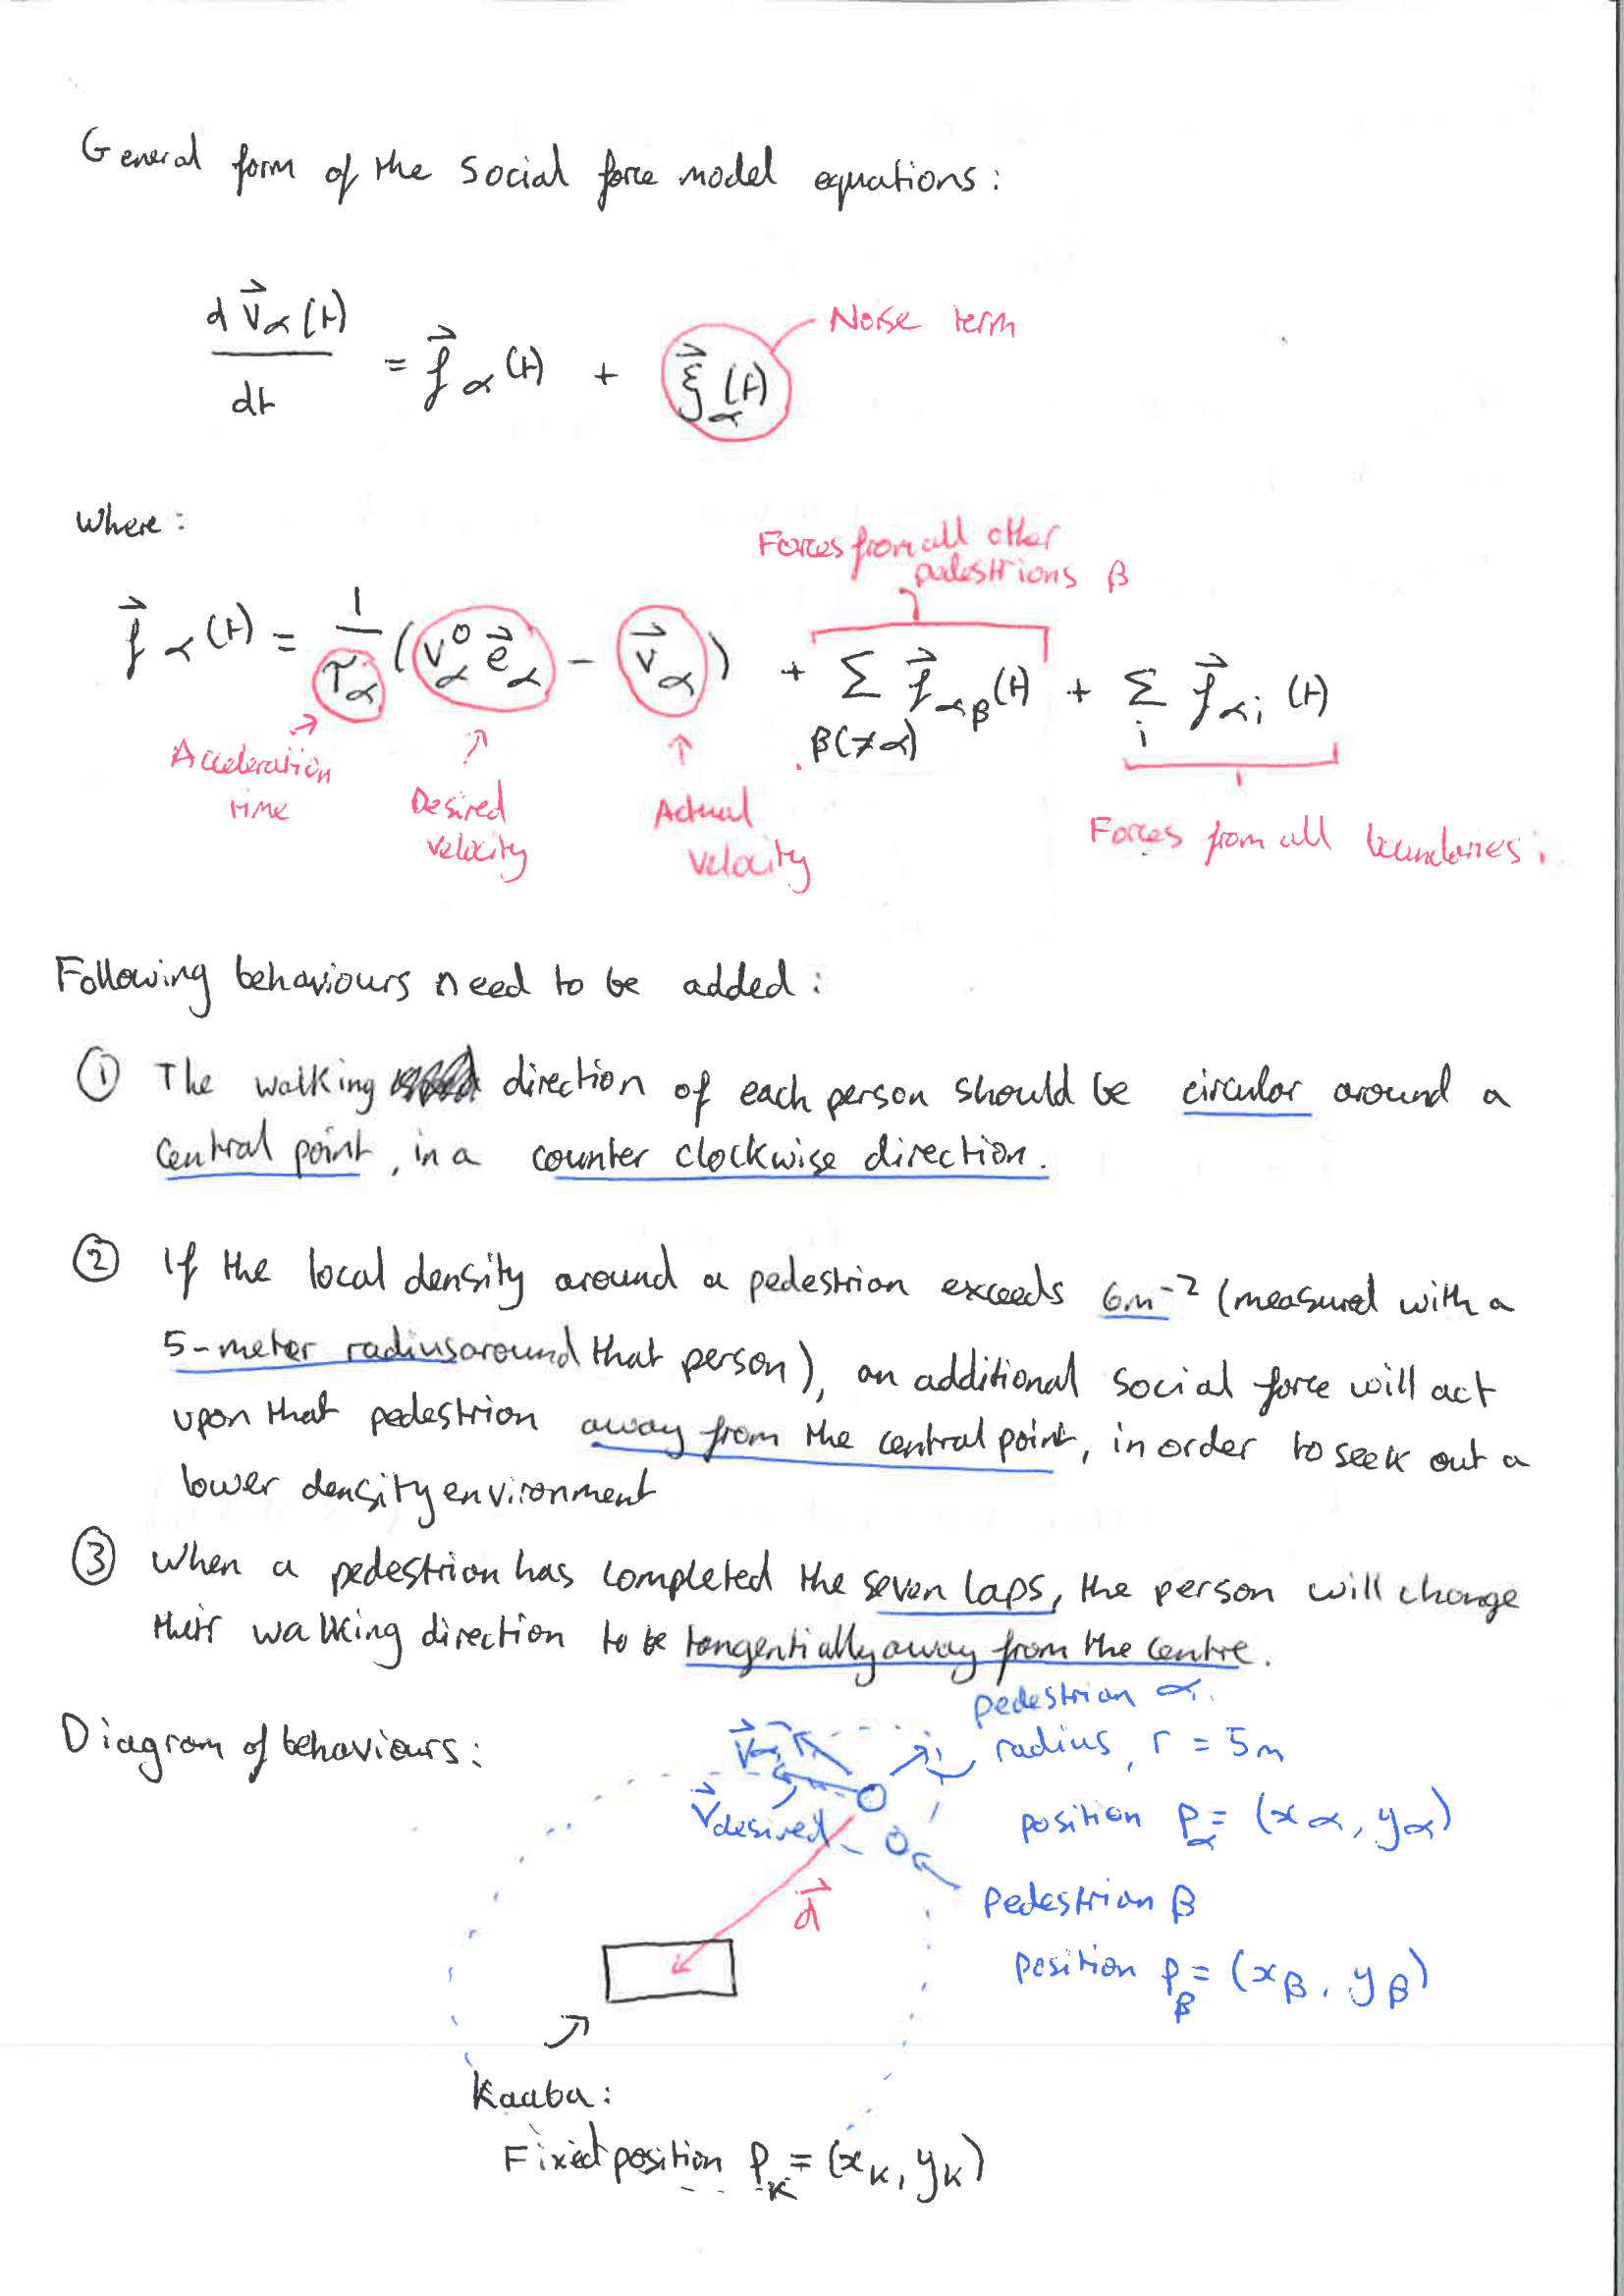 General form of the social force model equations:
d v⃗α(t) / dt = f⃗α(t) + ξ⃗α(t)
Noise term
where:
Forces from all other
pedestrians β
f⃗α(t) = 1/τα (vα⁰ e⃗α − v⃗α) + Σβ(≠α) f⃗αβ(t) + Σi f⃗αi(t)
Acceleration
time
Desired
velocity
Actual
velocity
Forces from all boundaries i
Following behaviours need to be added:
① The walking direction of each person should be circular around a
central point, in a counter clockwise direction.
② If the local density around a pedestrian exceeds 6m⁻² (measured with a
5-meter radius around that person), an additional social force will act
upon that pedestrian away from the central point, in order to seek out a
lower density environment
③ When a pedestrian has completed the seven laps, the person will change
their walking direction to be tangentially away from the centre.
Diagram of behaviours:
pedestrian α
radius, r = 5m
position pα = (xα, yα)
v⃗α
v⃗desired
d⃗
Pedestrian β
position pβ = (xβ, yβ)
Kaaba:
Fixed position pK = (xK, yK)